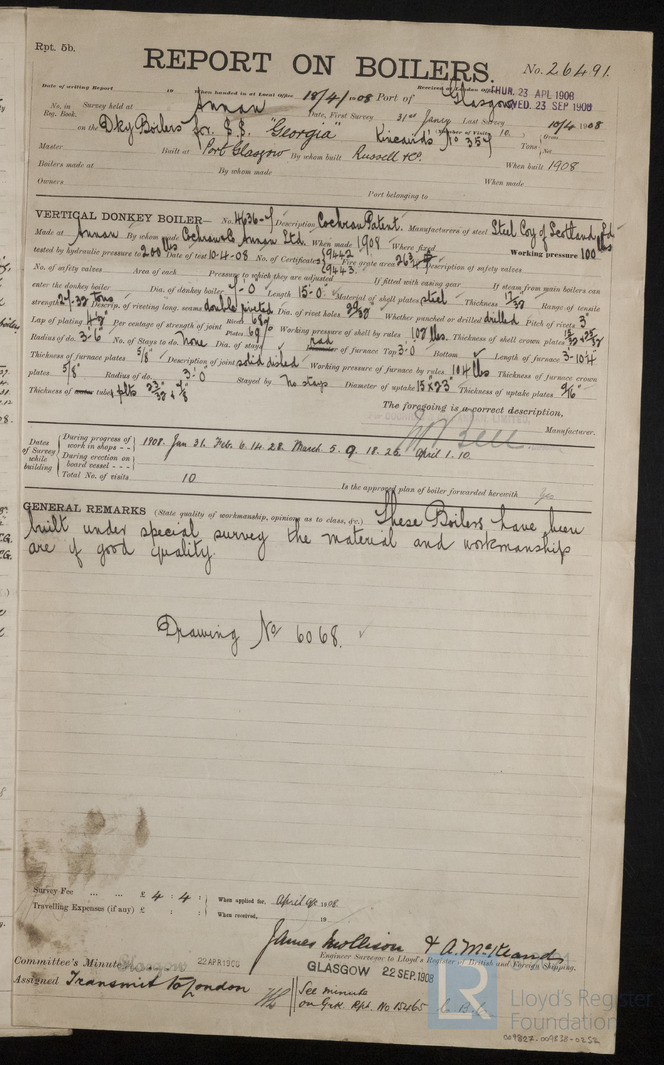 Rpt. 5b.
REPORT ON BOILERS.
No. 26491.
Date of writing Report 19 When handed in at Local Office 18/4/1908 Port of Glasgow
Received at London Office THUR. 23 APL 1908
WED. 23 SEP 1908
No. in Reg. Book. Survey held at Annan Date, First Survey 31st Jany Last Survey 10/4 1908
(Number of Visits 10.)
on the Dky Boilers for S.S. "Georgia" Kincaid's No 354 Tons Gross Net
Master Built at Port Glasgow By whom built Russell & Co. When built 1908
Boilers made at By whom made When made
Owners Port belonging to
VERTICAL DONKEY BOILER— No. 4636-7 Description Cochran Patent. Manufacturers of steel Steel Coy of Scotland Ltd.
Made at Annan By whom made Cochran & Co. Annan Ltd. When made 1908 Where fixed Working pressure 100 lbs
tested by hydraulic pressure to 200 lbs Date of test 10-4-08 No. of Certificate 9442 9443 Fire grate area 26¾ Description of safety valves
No. of safety valves Area of each Pressure to which they are adjusted If fitted with easing gear If steam from main boilers can
enter the donkey boiler Dia. of donkey boiler 7'-0 Length 15'-0" Material of shell plates steel Thickness 17/32" Range of tensile
strength 27-32 tons Descrip. of riveting long. seams double riveted Dia. of rivet holes 29/32" Whether punched or drilled drilled Pitch of rivets 3"
Lap of plating 4⅝" Per centage of strength of joint Rivets 68% Plates 69% Working pressure of shell by rules 102 lbs. Thickness of shell crown plates
Radius of do. 3'-6" No. of Stays to do. None Dia. of stays of furnace Top 3'-0 Bottom Length of furnace 3-10¼"
Thickness of furnace plates 5/8" Description of joint solid disted Working pressure of furnace by rules 104 lbs Thickness of furnace crown
plates 5/8" Radius of do. 3'-0" Stayed by No stays Diameter of uptake 15" x 23" Thickness of uptake plates 9/16"
Thickness of water tubes plts 23/32 & 7/8"
The foregoing is a correct description,
Bell Manufacturer.
Dates of Survey while building
During progress of work in shops - - 1908. Jan 31. Feb. 6. 14. 28. March 5. 9. 18. 25. April 1. 10.
During erection on board vessel - - -
Total No. of visits 10
Is the approved plan of boiler forwarded herewith Yes
GENERAL REMARKS (State quality of workmanship, opinions as to class, &c.) These Boilers have been
built under special survey the material and workmanship
are of good quality.
Drawing No 6068.
Survey Fee ... ... £ 4 : 4 : When applied for, April 1908
Travelling Expenses (if any) £ : : When received, 19
James Mollison & A. McKeand
Engineer Surveyor to Lloyd's Register of British and Foreign Shipping.
Committee's Minute 22 APR 1908 GLASGOW 22 SEP. 1908
Assigned Transmit to London
See minute
on Grk. Rpt. No 15465
Lloyd's Register
Foundation
009827-009838-0252